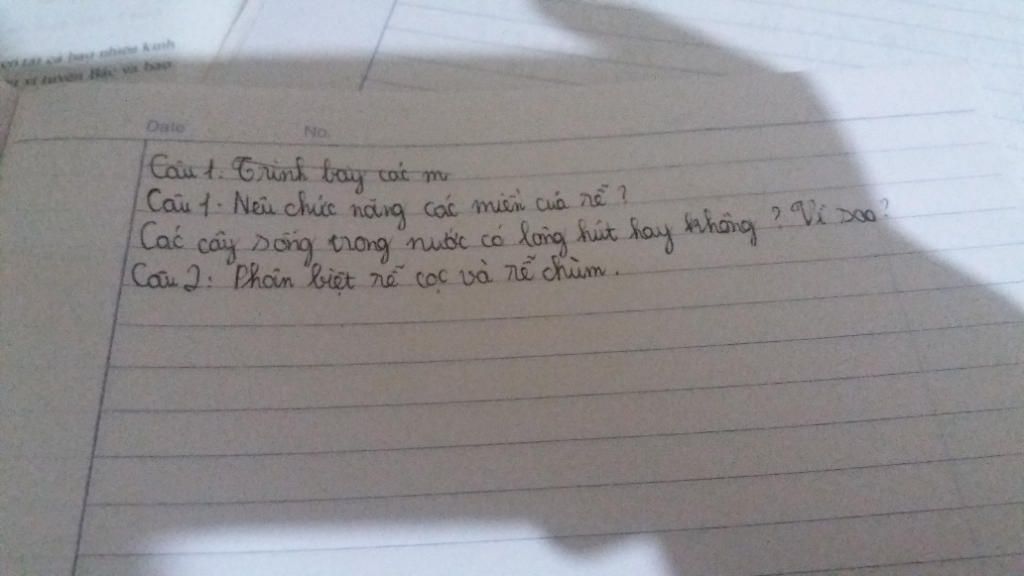 Date No.
Câu 1. Trình bày các m
Câu 1. Nêu chức năng các miền của rễ?
Các cây sống trong nước có lông hút hay không? Vì sao?
Câu 2: Phân biệt rễ cọc và rễ chùm.